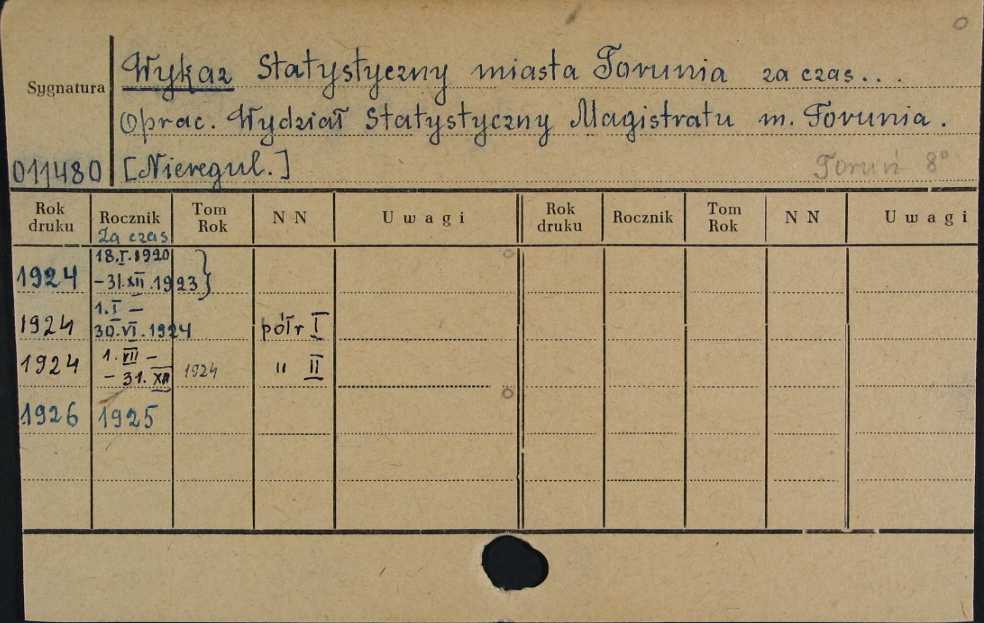 Sygnatura
Wykaz Statystyczny miasta Torunia za czas...
Oprac. Wydział Statystyczny Magistratu m. Torunia.
011480 [Nieregul.] Toruń 8°
Rok druku Rocznik Za czas Tom Rok N N Uwagi Rok druku Rocznik Tom Rok N N Uwagi
1924 18.I.1920
–31.XII.1923}
1924 1.I –
30.VI.1924 półr I
1924 1.VII –
– 31.XII 1924 " II
1926 1925